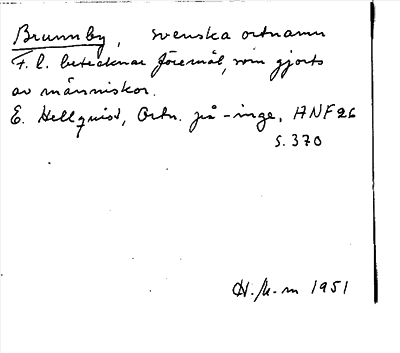 Brunnby, svenska ortnamn
F.l. betecknar föremål, som gjorts
av människor.
E. Hellquist, Ortn. på -inge, ANF 26
s. 370
H. K-m 1951